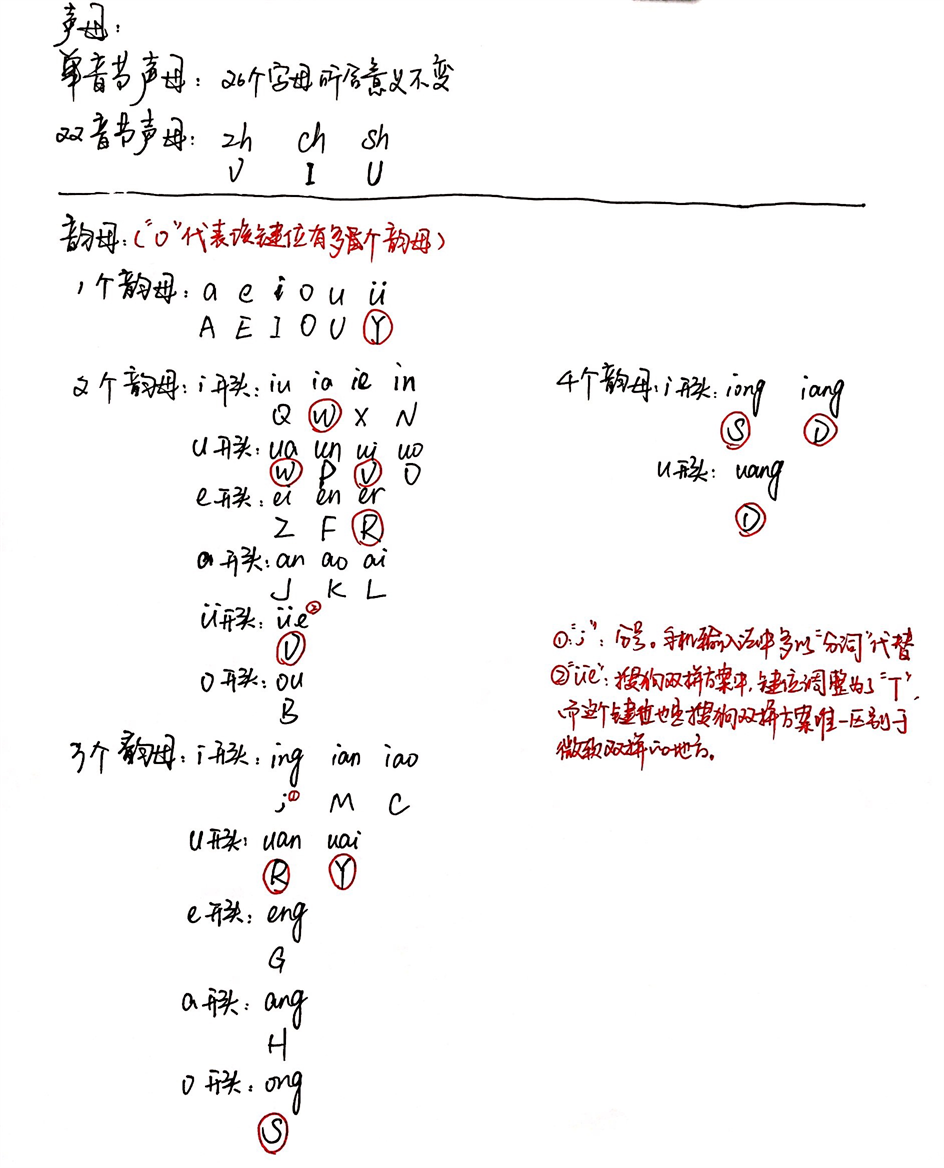 声母：
单音节声母：26个字母所含意义不变
双音节声母：zh ch sh
V I U
韵母：（"O"代表该键位有多个韵母）
1个韵母：a e i o u ü
A E I O U Y
2个韵母：i开头：iu ia ie in
Q W X N
u开头：ua un ui uo
W P V O
e开头：ei en er
Z F R
a开头：an ao ai
J K L
ü开头：üe②
V
o开头：ou
B
3个韵母：i开头：ing ian iao
;① M C
u开头：uan uai
R Y
e开头：eng
G
a开头：ang
H
o开头：ong
S
4个韵母：i开头：iong iang
S D
u开头：uang
D
①";"：分号。手机输入法中多以"分词"代替
②"üe"：搜狗双拼方案中，键位调整为了"T"，
而这个键位也是搜狗双拼方案唯一区别于
微软双拼的地方。